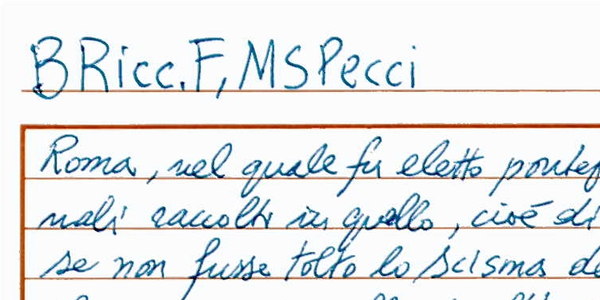 BRicc.F, MSPecci
Roma, nel quale fu eletto pontef
nali raccolti in quello, cioé di
se non fusse tolto lo scisma de